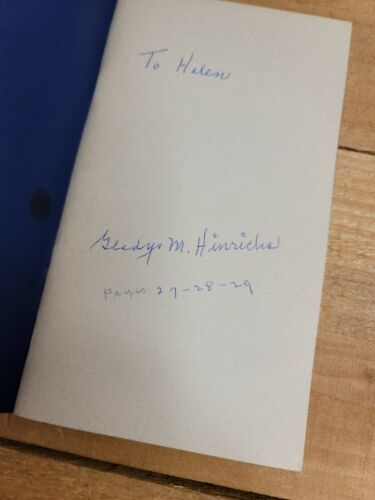 To Helen
Gladys M. Hinrichs
pages 27-28-29